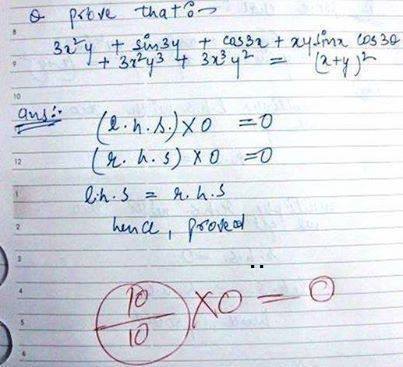 Q prove that :-
3x²y + sin3y + cos3x + xysinx cos30
+ 3x²y³ + 3x³y² = (x+y)²
ans:-
(l.h.s.)×0 =0
(r.h.s)×0 =0
l.h.s = r.h.s
hence, proved
10/10 ×0 = 0